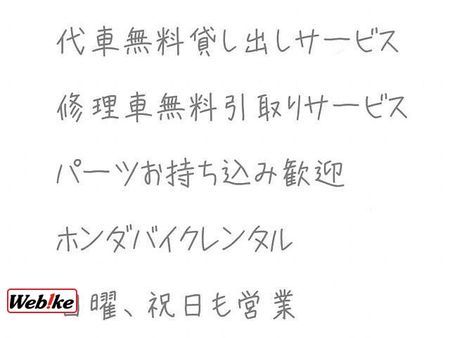 代車無料貸し出しサービス
修理車無料引取りサービス
パーツお持ち込み歓迎
ホンダバイクレンタル
Web!ke 曜、祝日も営業